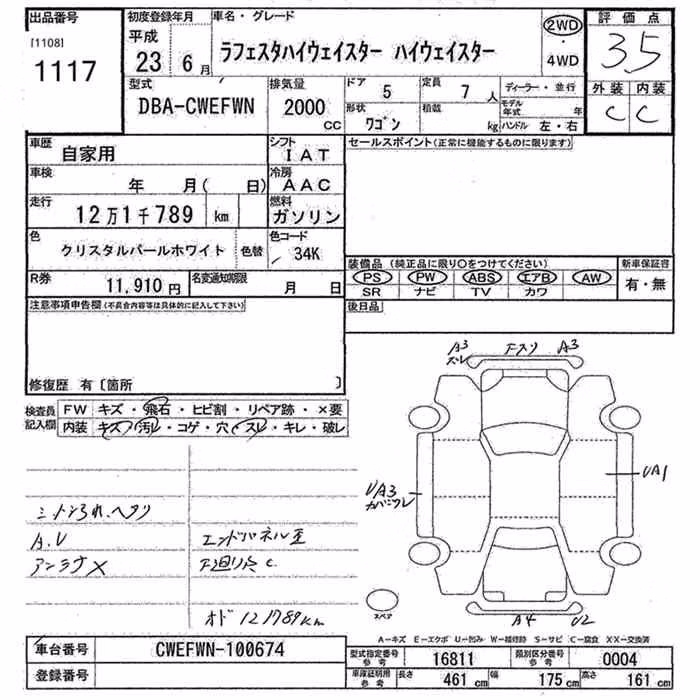 出品番号 初度登録年月 車名・グレード 評価点
[1108] 平成 2WD
1117 23 6月 ラフェスタハイウェイスター ハイウェイスター ・ 3.5
4WD
型式 排気量 ドア 5 定員 7人 ディーラー・並行 外装 内装
DBA-CWEFWN 2000 CC 形状 ワゴン 積載 kg モデル年式 年 C C
ハンドル 左・右
車歴 自家用 シフト IAT セールスポイント(正常に機能するものに限ります)
車検 年 月( 日) 冷房 AAC
走行 12万1千789 km 燃料 ガソリン
色 クリスタルパールホワイト 色替 色コード 34K
装備品(純正品に限り○をつけてください) 新車保証書
R券 11,910円 名変通知期限 月 日 PS PW ABS エアB AW 有・無
SR ナビ TV カワ
注意事項申告欄(不具合内容等は具体的に記入して下さい) 後日品
修復歴 有〔箇所 〕
A3 スレ A3
検査員記入欄 FW キズ・飛石・ヒビ割・リペア跡・×要
内装 キズ・汚レ・コゲ・穴・スレ・キレ・破レ
UA1
UA3
A.V エンドパネル歪
アンテナ×
C.
オド 121789km
スペア
A4 U2
A-キズ E-エクボ U-凹み W-補修跡 S-サビ C-腐食 XX-交換済
車台番号 CWEFWN-100674 型式指定番号 参考 16811 類別区分番号 参考 0004
登録番号 車庫証明用 参考 長さ 461cm 幅 175cm 高さ 161cm